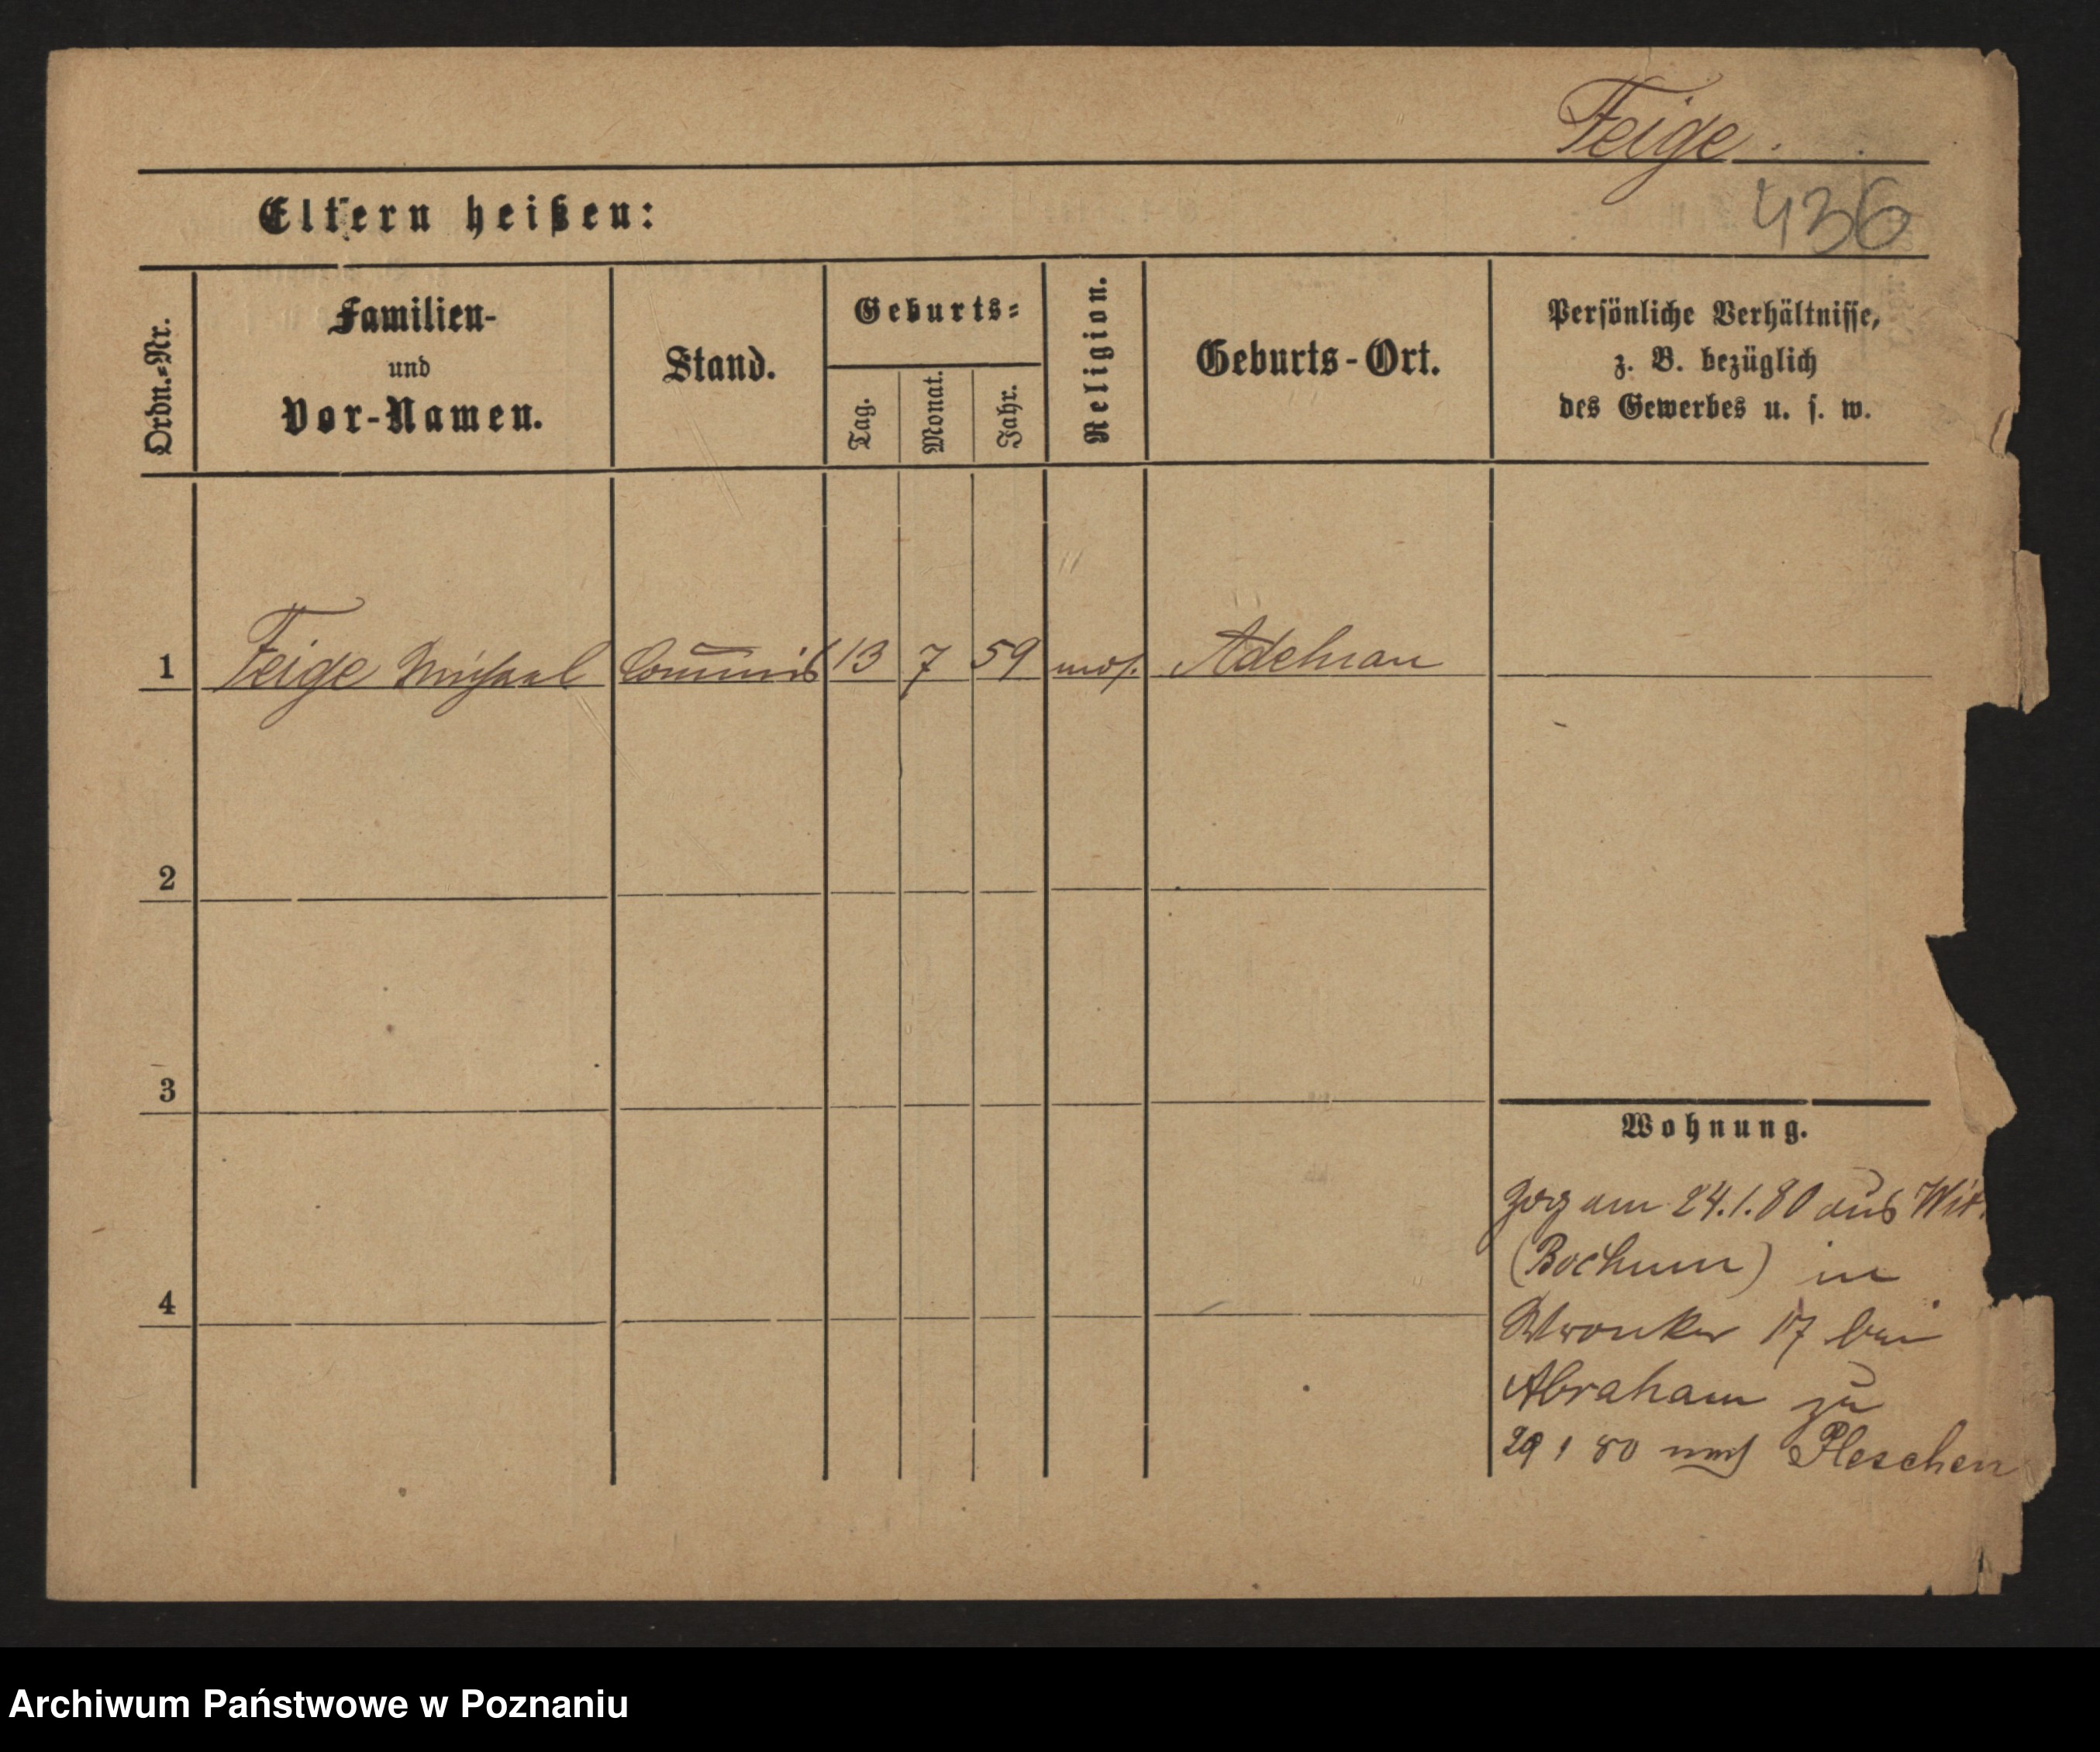 Feige.
436
Eltern heißen:
Ordn.-Nr.
Familien-
und
Vor-Namen.
Stand.
Geburts-
Tag.
Monat.
Jahr.
Religion.
Geburts-Ort.
Persönliche Verhältnisse,
z. B. bezüglich
des Gewerbes u. s. w.
1 Feige Michael Commis 13 7 59 mos. Adelnau
2
3
4
Wohnung.
Zog am 24.1.80 aus Wit
(Bochum) in
Wronker 17 bei
Abraham zu
29 1 80 nach Pleschen
Archiwum Państwowe w Poznaniu